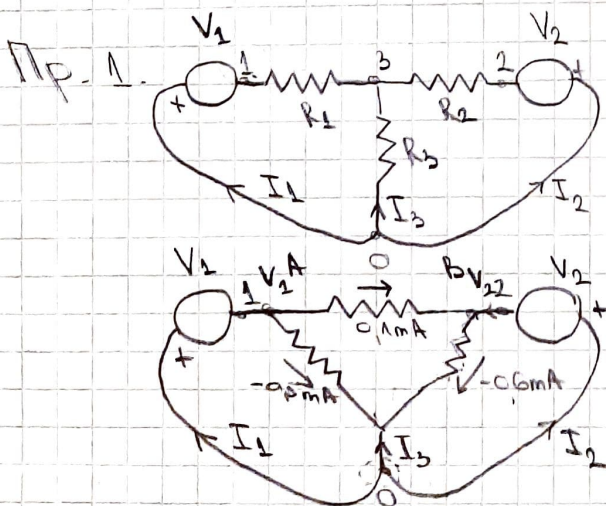 Пр. 1.
V₁ V₂
+ 1 3 2 +
R₁ R₂
R₃
I₁ I₃ I₂
0
V₁ V₁ᴬ → B V₂₂ V₂
1 +
0,1mA
+ -0,6mA
I₁ I₃ I₂
0